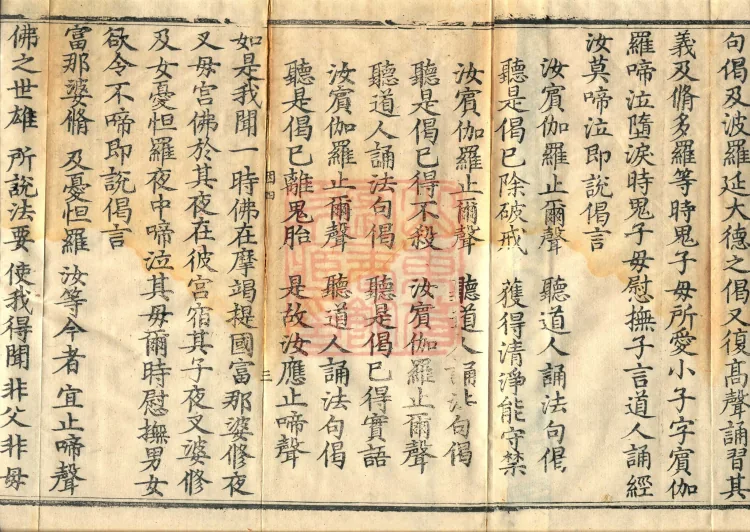 句偈及波羅延大德之偈又復髙聲誦習其
義及脩多羅等時鬼子母所愛小子字賓伽
羅啼泣墮淚時鬼子母慰撫子言道人誦經
汝莫啼泣即説偈言
汝賓伽羅止爾聲 聽道人誦法句偈
聽是偈已除破戒 獲得清淨能守禁
汝賓伽羅止爾聲 聽道人誦法句偈
聽是偈已得不殺 汝賓伽羅止爾聲
聽道人誦法句偈 聽是偈已得實語
汝賓伽羅止爾聲 聽道人誦法句偈
聽是偈已離鬼胎 是故汝應止啼聲
因四 三
如是我聞一時佛在摩竭提國富那婆修夜
叉母宮佛於其夜在彼宮宿其子夜叉婆修
及女憂怛羅夜中啼泣其母爾時慰撫男女
欲令不啼即說偈言
富那婆脩 及憂怛羅 汝等今者 宜止啼聲
佛之世雄 所說法要 使我得聞 非父非母